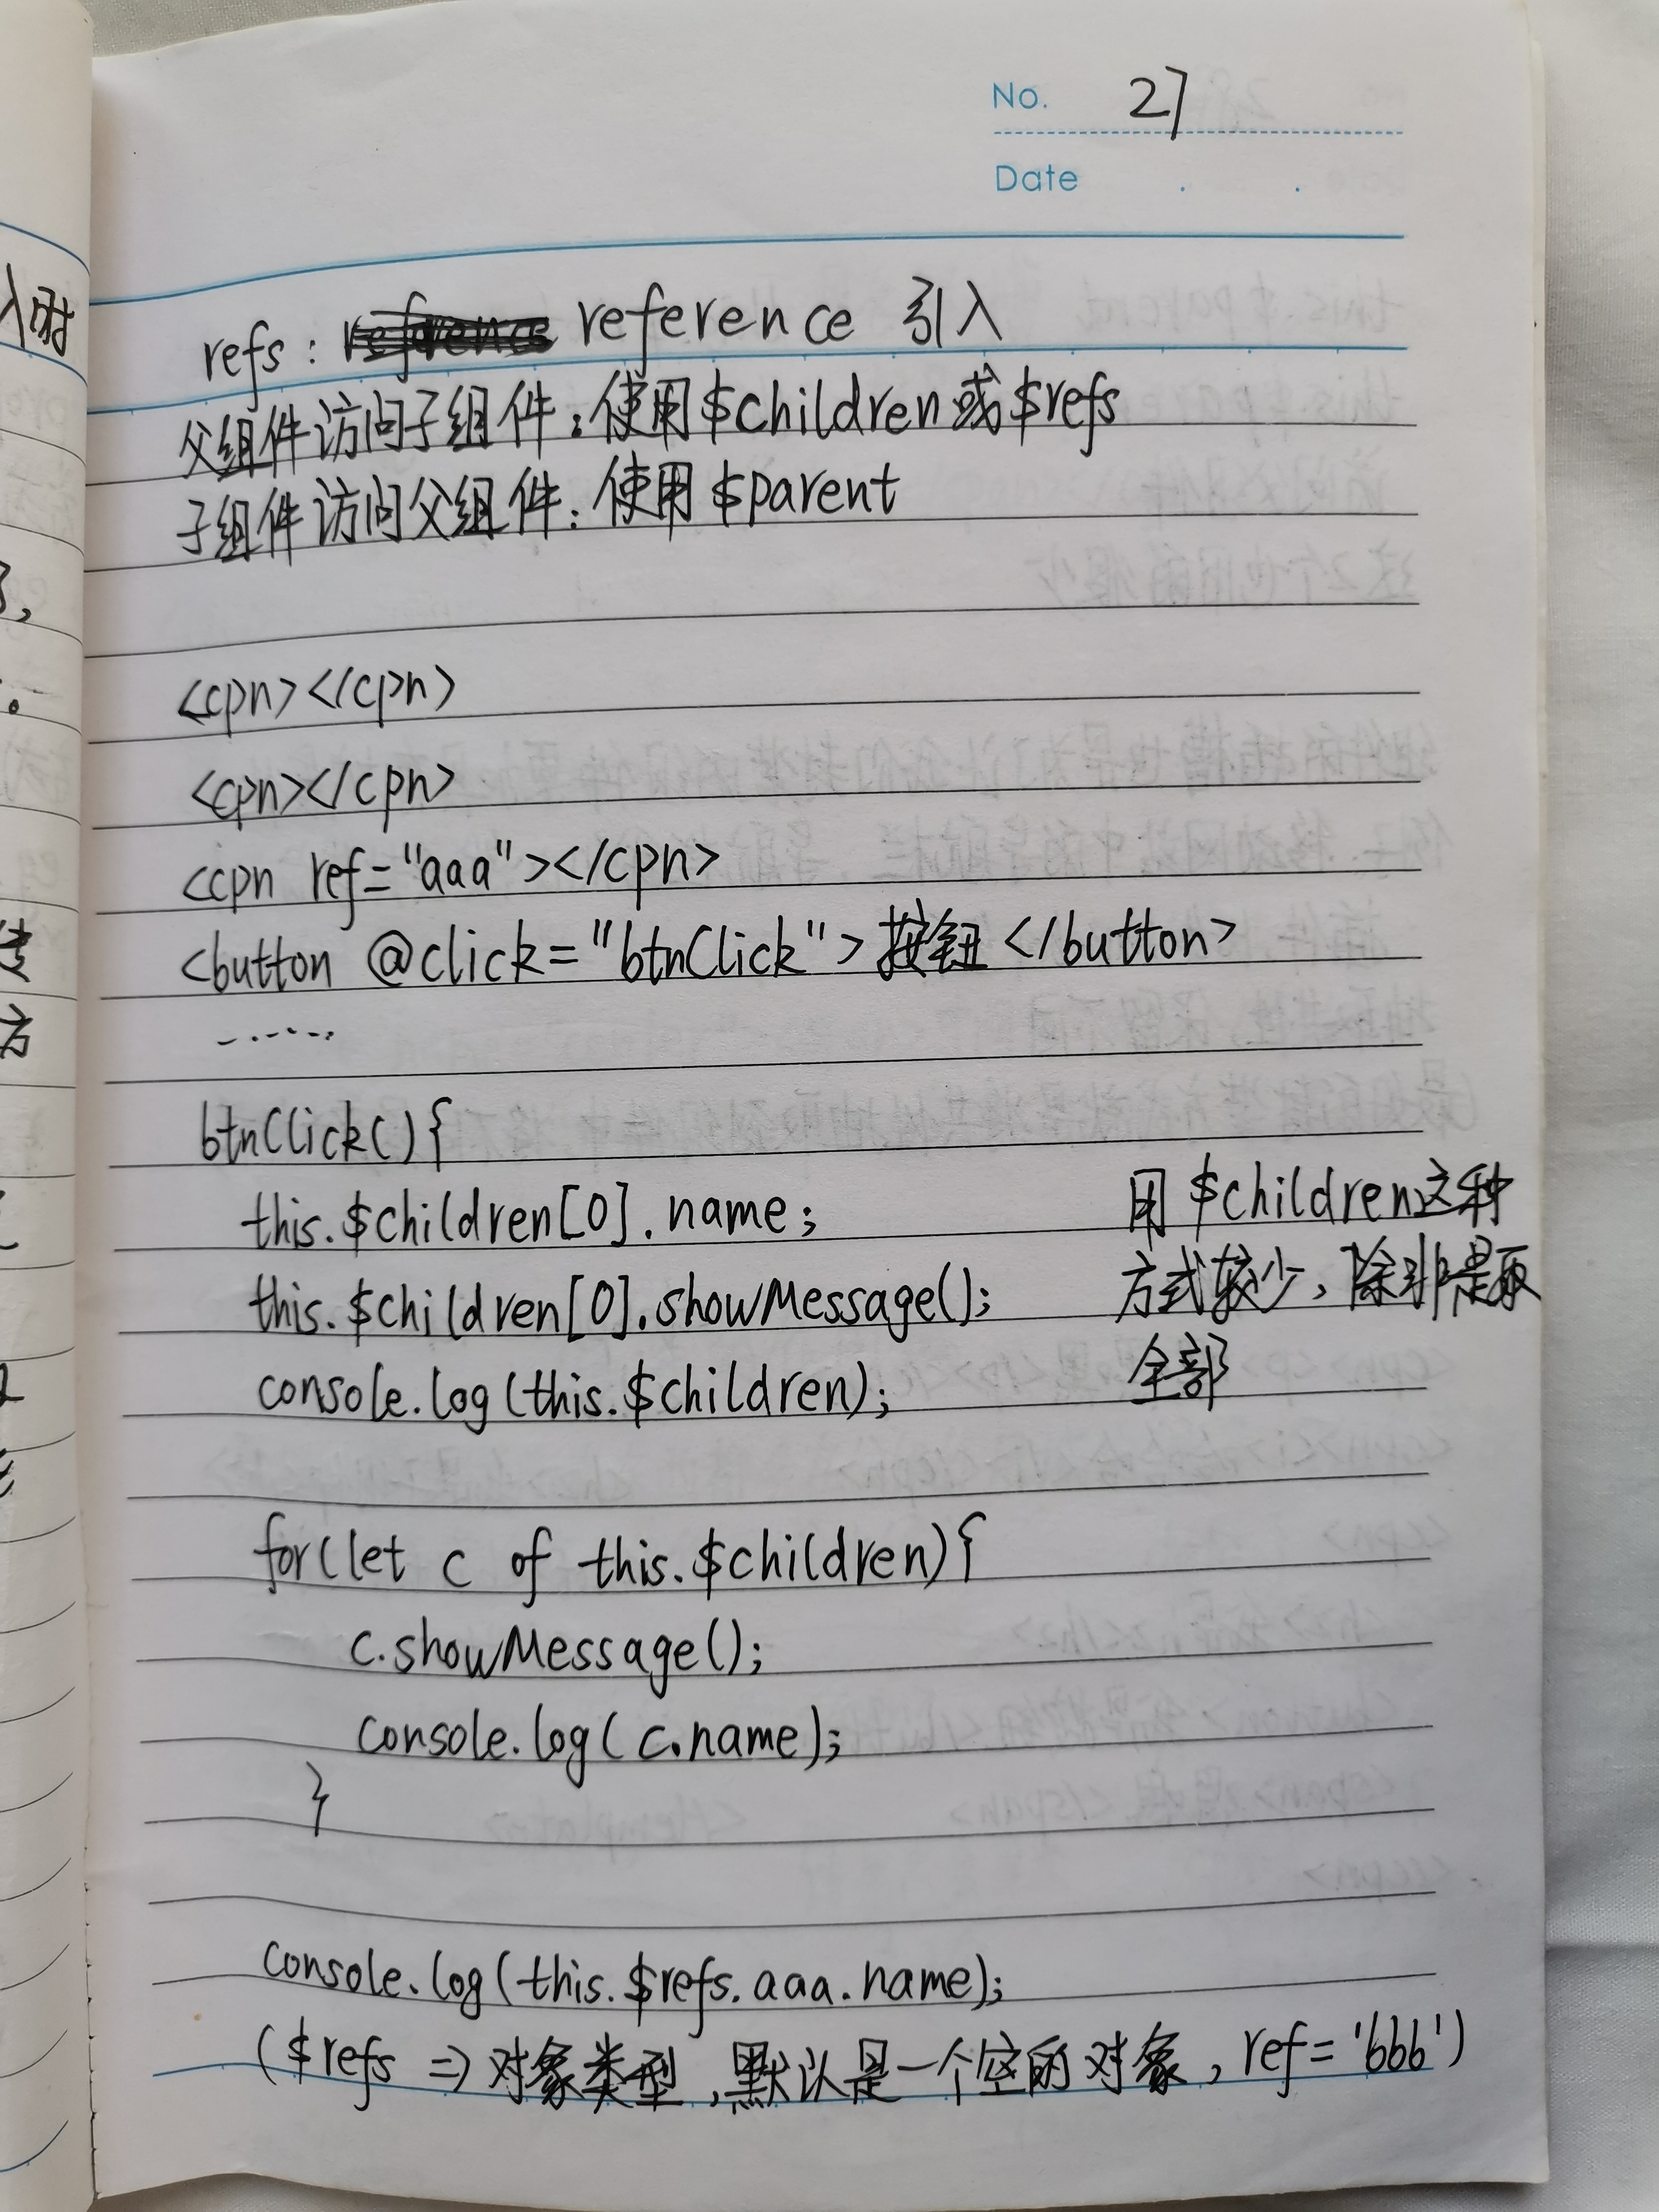 No. 27
Date
refs: reference 引入
父组件访问子组件:使用$children或$refs
子组件访问父组件:使用$parent
<cpn></cpn>
<cpn></cpn>
<cpn ref="aaa"></cpn>
<button @click="btnClick">按钮</button>
......
btnClick(){
this.$children[0].name;
this.$children[0].showMessage();
console.log(this.$children);
用$children这种
方式较少,除非是取
全部
for(let c of this.$children){
c.showMessage();
console.log(c.name);
}
console.log(this.$refs.aaa.name);
($refs => 对象类型,默认是一个空的对象,ref='bbb')